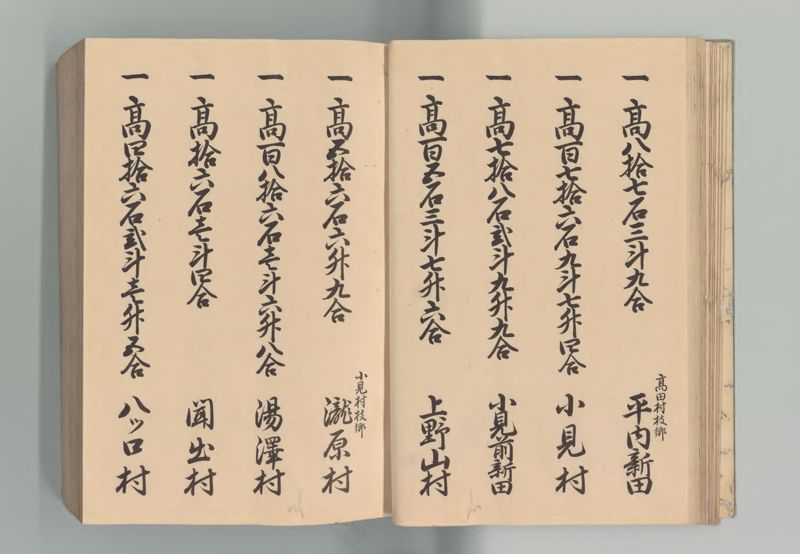 一高八拾七石三斗九合
高田村枝郷
平内新田
一高百七拾六石九斗七升四合 小見村
一高七拾八石弐斗九升九合 小見前新田
一高百五石三斗七升六合 上野山村
一高五拾六石六升九合
小見村枝郷
瀧原村
一高百八拾六石壱斗六升八合 湯澤村
一高拾六石壱斗四合 聞出村
一高四拾六石弐斗壱升五合 八ツ口村